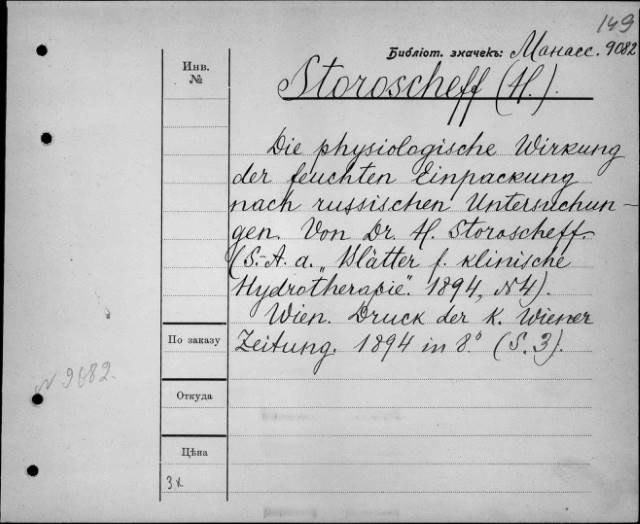 149
Библіот. значекъ: Манасс. 9082
Инв.
№
Storoscheff (H.).
Die physiologische Wirkung
der feuchten Einpackung
nach russischen Untersuchun-
gen. Von Dr. H. Storoscheff.
(S.-A. a. „Blätter f. klinische
Hydrotherapie". 1894, №4).
Wien. Druck der k. Wiener
Zeitung. 1894 in 8.° (S. 3).
По заказу
N 9682.
Откуда
Цѣна
3 к.